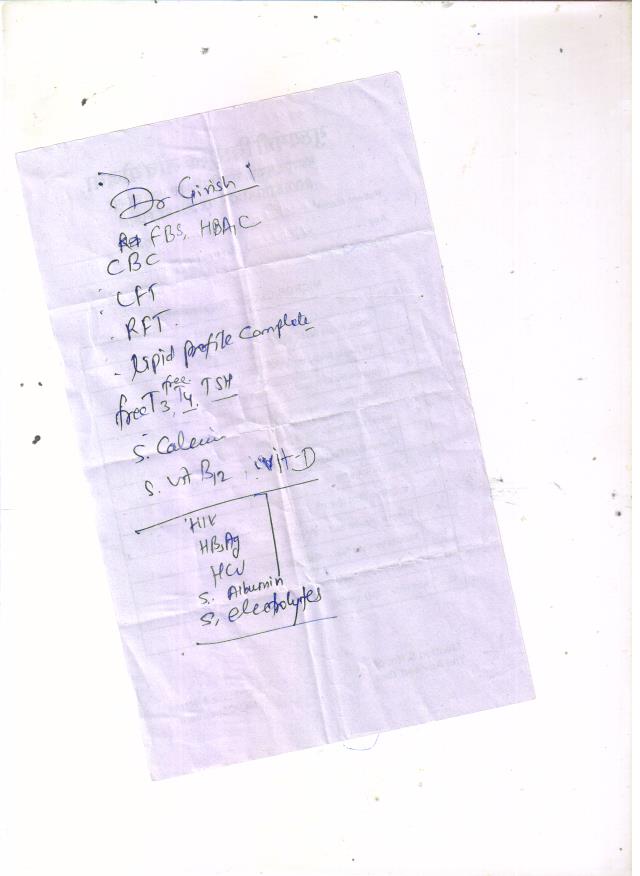 Dr Girish
FBS, HBA1C
CBC
LFT
RFT
lipid profile complete
free T3, free T4, TSH
S. Calcium
S. vit B12, vit-D
HIV
HBsAg
HCV
S. Albumin
S. electrolytes